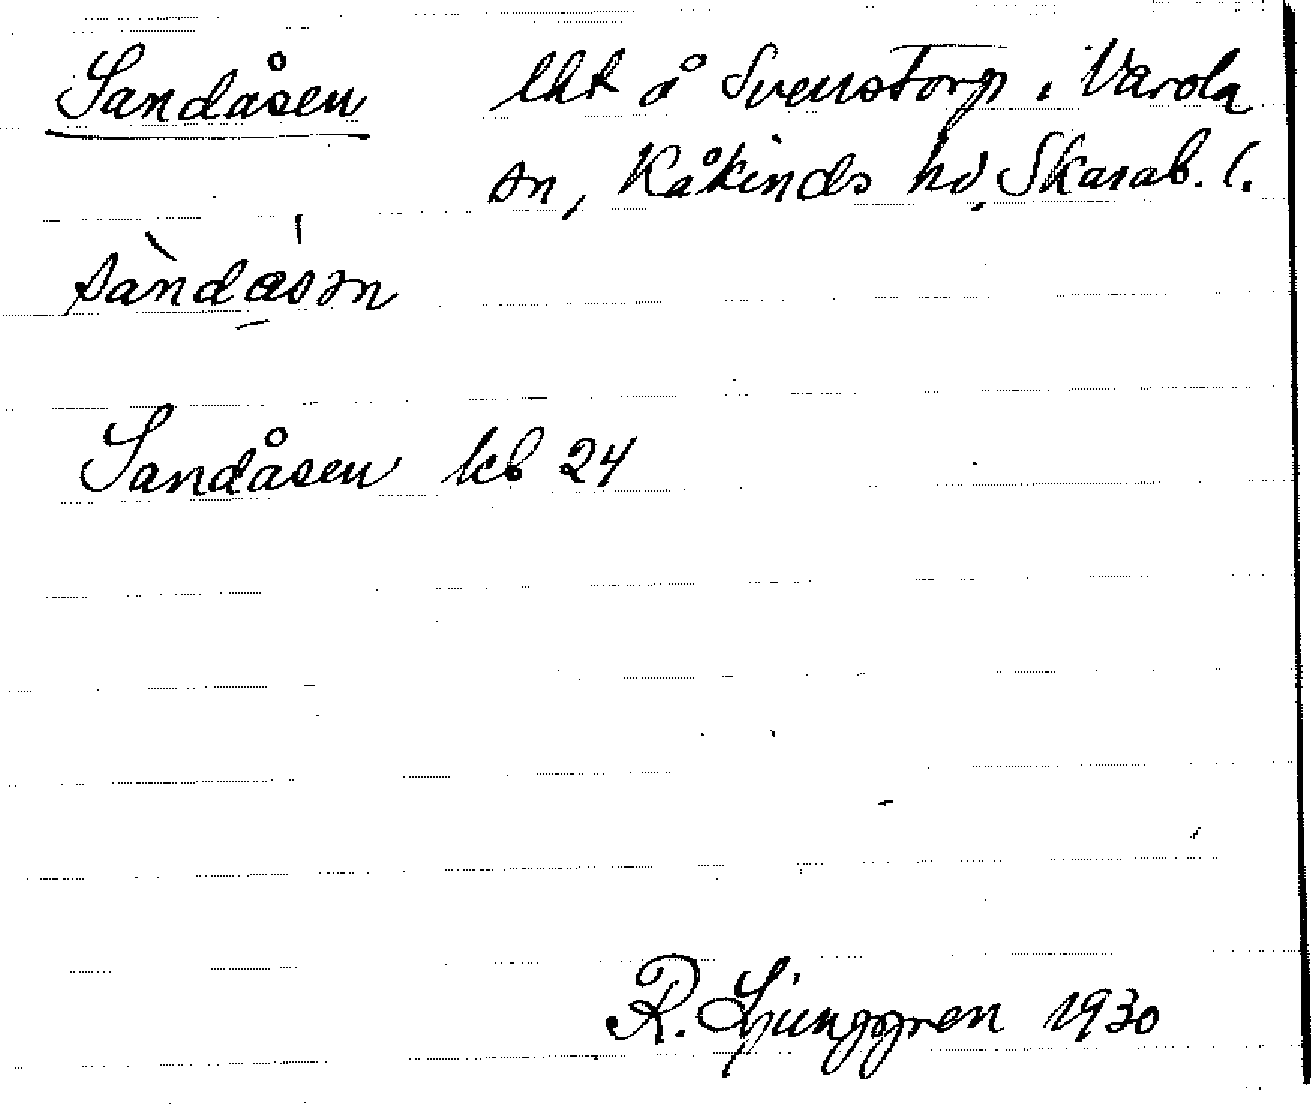 Sandåsen lht å Svenstorp i Varola
sn, Kåkinds hd, Skarab. l.
sàndásən
Sandåsen kb 24
R. Ljunggren 1930